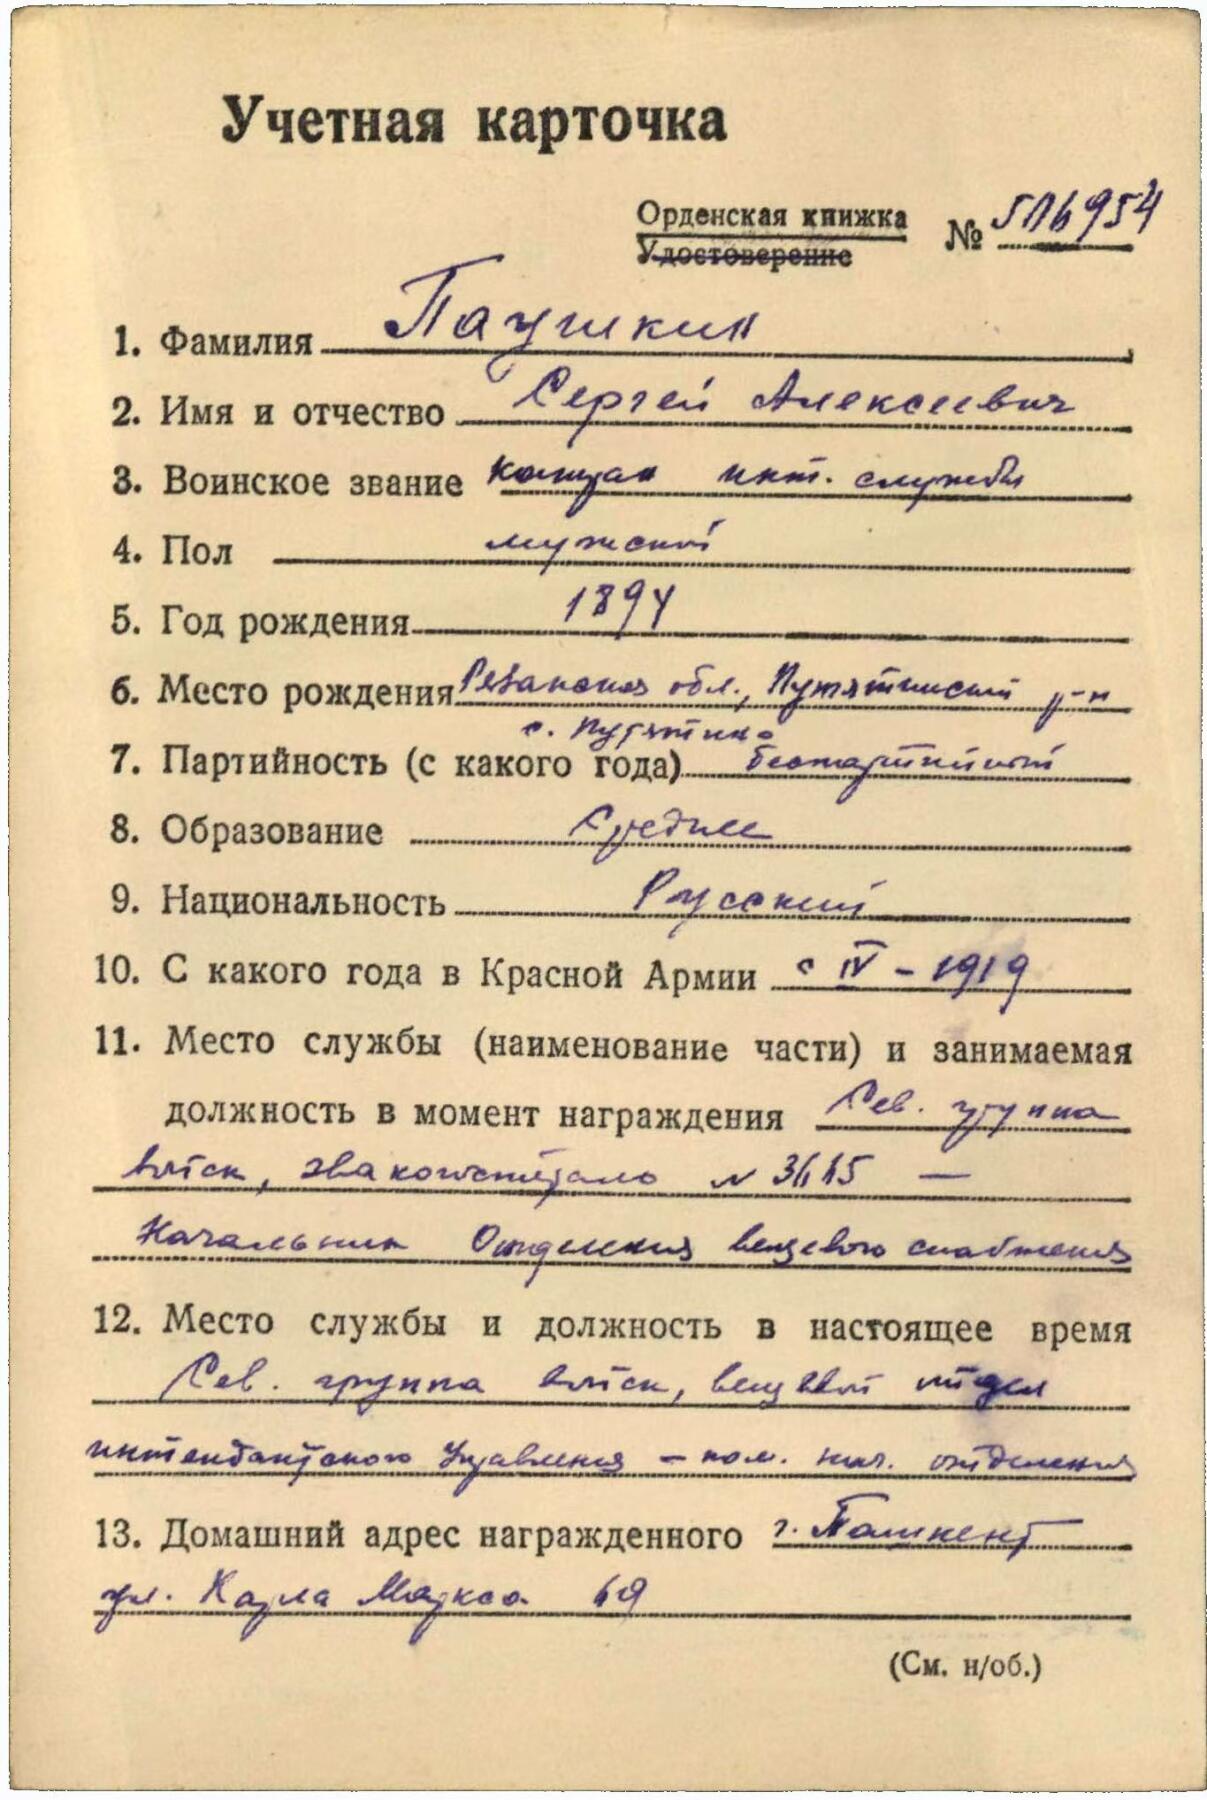 Учетная карточка
Орденская книжка
Удостоверение
№
1. Фамилия Паушкин
2. Имя и отчество Сергей Алексеевич
3. Воинское звание Капитан инт. службы
4. Пол мужской
5. Год рождения 1894
6. Место рождения Рязанская обл., Путятинский р-н
с. Путятино
7. Партийность (с какого года) беспартийный
8. Образование Среднее
9. Национальность Русский
10. С какого года в Красной Армии с IV - 1919
11. Место службы (наименование части) и занимаемая
должность в момент награждения Сев. группа
войск, эвакогоспиталь №
Начальник Отделения вещевого снабжения
12. Место службы и должность в настоящее время
Сев. группа войск, вещевой отдел
интендантского Управления - пом. нач. отделения
13. Домашний адрес награжденного г. Ташкент
ул. Карла Маркса 69
(См. н/об.)